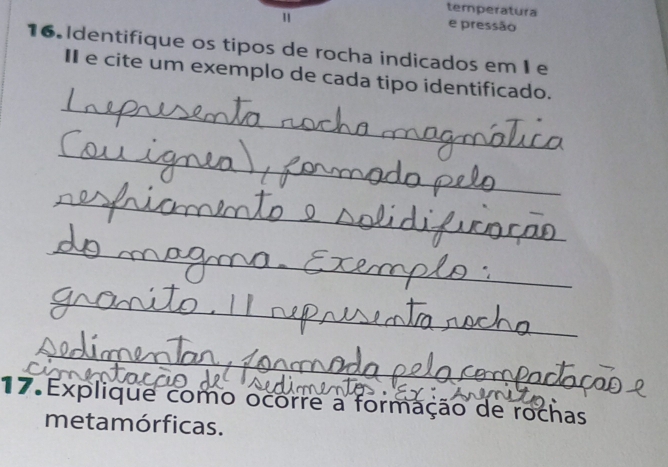 temperatura
e pressão
II
16. Identifique os tipos de rocha indicados em I e
II e cite um exemplo de cada tipo identificado.
I representa rocha magmática
(ou ígnea), formada pelo
resfriamento e solidificação
do magma. Exemplo:
granito. II representa rocha
sedimentar, formada pela compactação e
cimentação de sedimentos. Ex:
17. Explique como ocorre a formação de rochas
metamórficas.